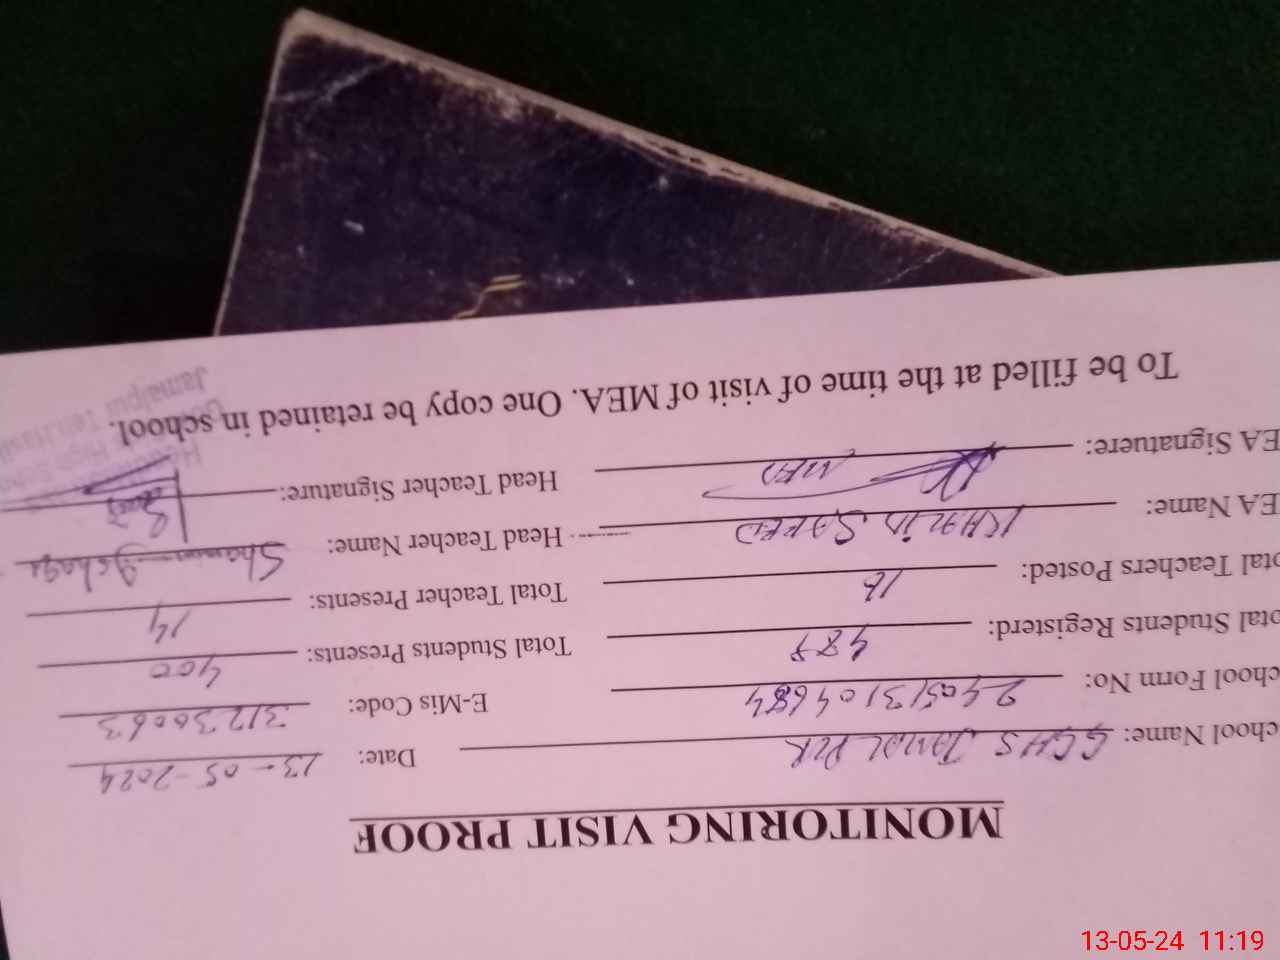 MONITORING VISIT PROOF
chool Name: GGHS Jamal PUR Date: 13-05-2024
chool Form No: 240513104684 E-Mis Code: 31230063
otal Students Registerd: 487 Total Students Presents: 400
otal Teachers Posted: 16 Total Teacher Presents: 14
EA Name: KHALID SAEED Head Teacher Name: Shamim
EA Signatuere: MEA Head Teacher Signature:
To be filled at the time of visit of MEA. One copy be retained in school.
Jamalpur
13-05-24 11:19